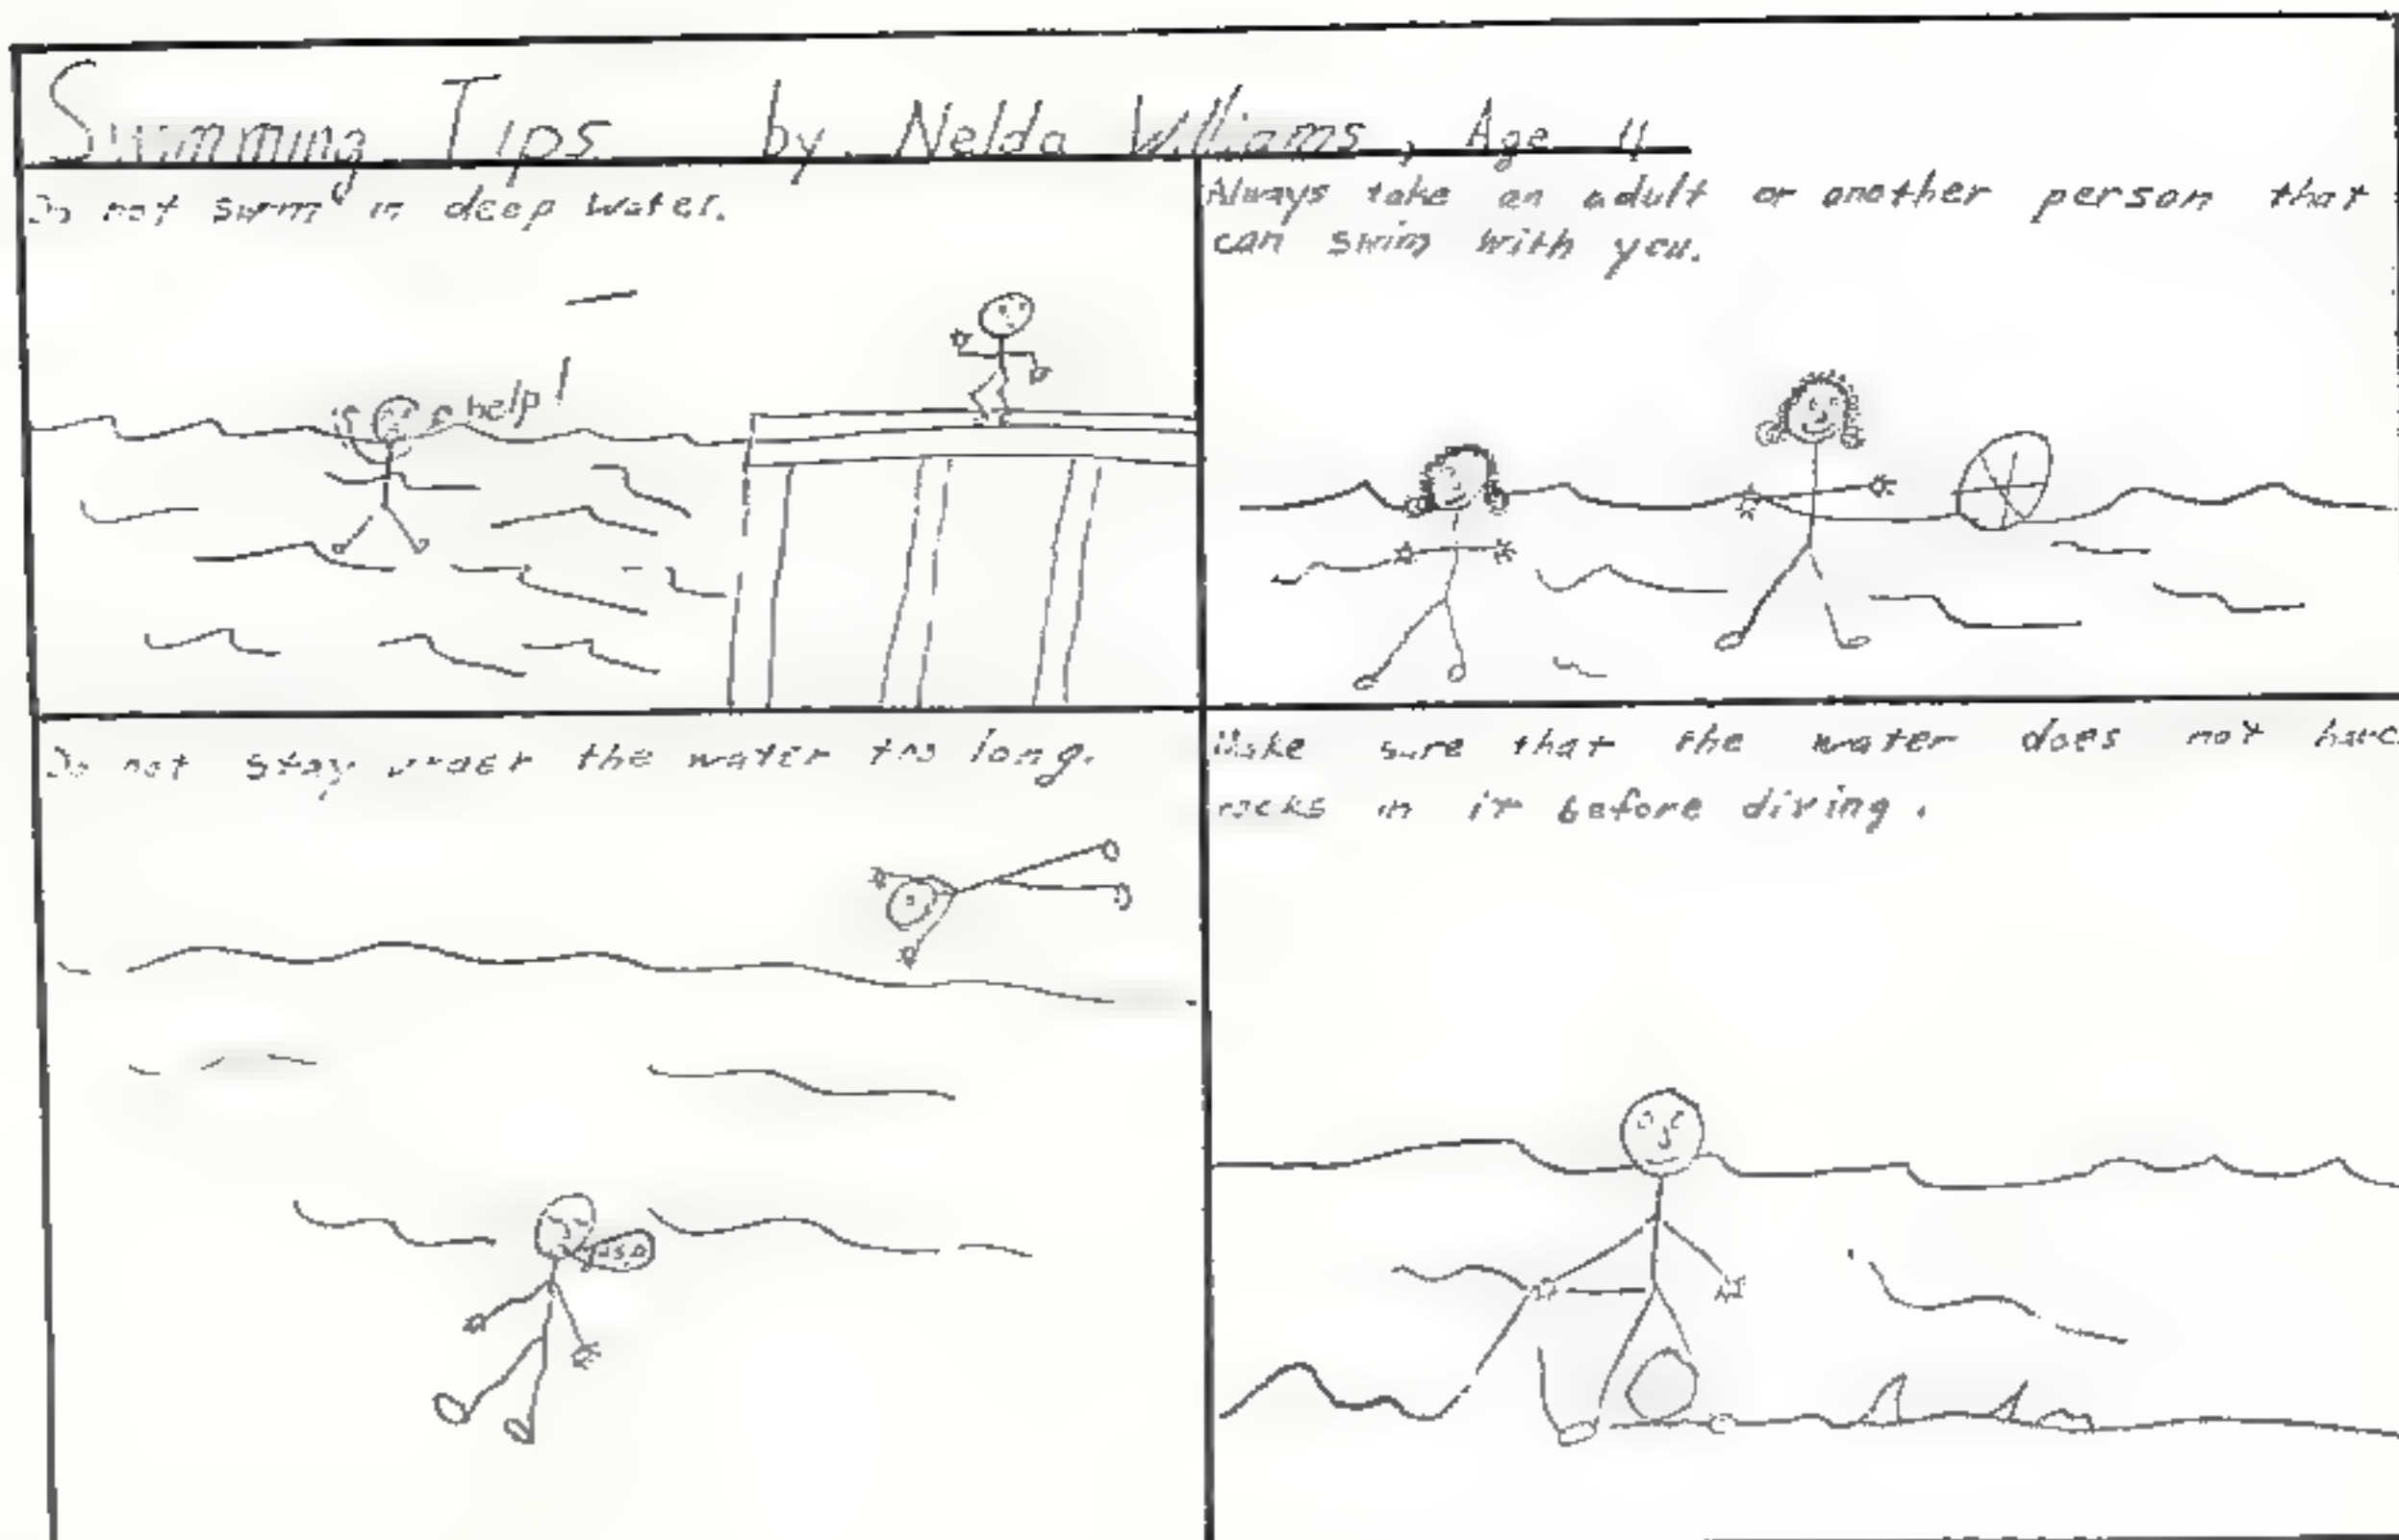 Swimming Tips by Nelda Williams, Age 11
Do not swim in deep water.
help!
Always take an adult or another person that
can swim with you.
Do not stay under the water too long.
Make sure that the water does not have
rocks in it before diving.